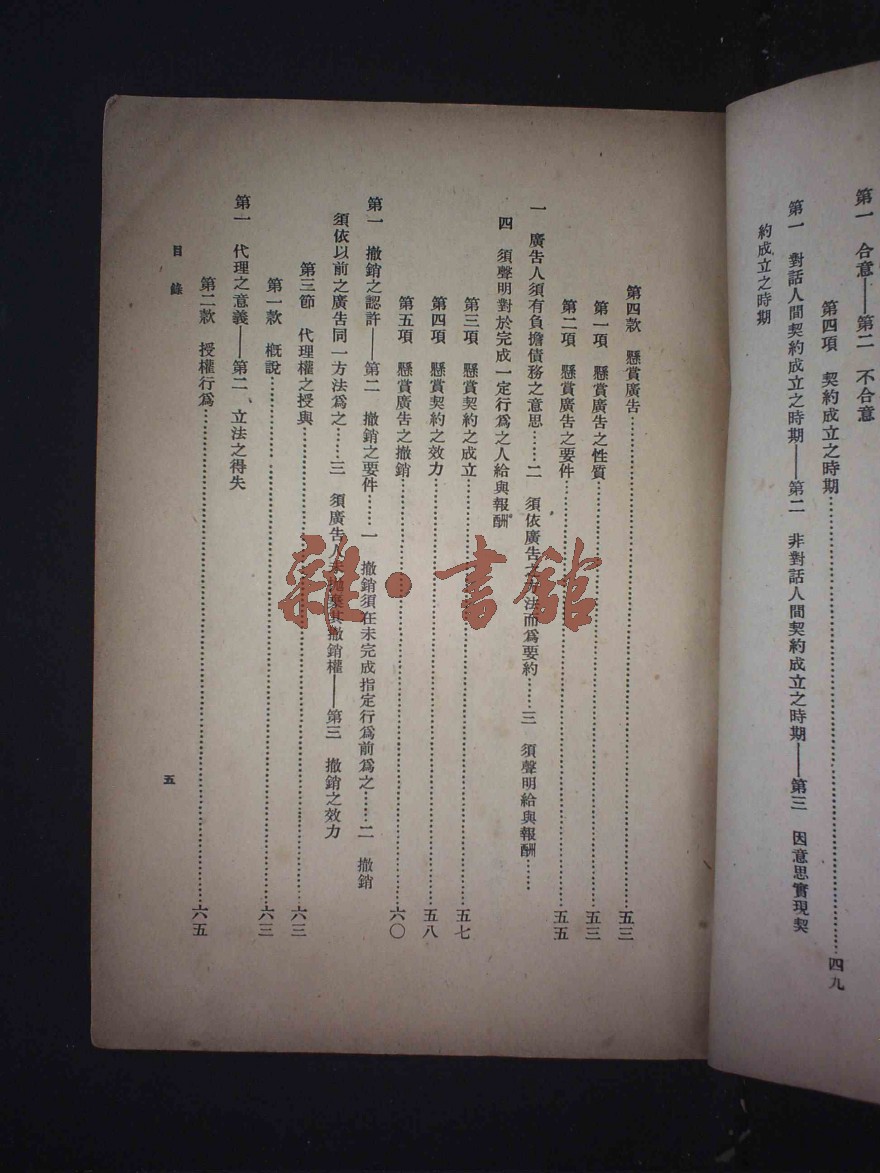 第一　合意——第二　不合意
第四項　契約成立之時期……四九
第一　對話人間契約成立之時期——第二　非對話人間契約成立之時期——第三　因意思實現契
約成立之時期
第四款　懸賞廣告……五三
第一項　懸賞廣告之性質……五三
第二項　懸賞廣告之要件……五五
一　廣告人須有負擔債務之意思……二　須依廣告之方法而爲要約……三　須聲明給與報酬……
四　須聲明對於完成一定行爲之人給與報酬
第三項　懸賞契約之成立……五七
第四項　懸賞契約之效力……五八
第五項　懸賞廣告之撤銷……六〇
第一　撤銷之認許——第二　撤銷之要件……一　撤銷須在未完成指定行爲前爲之……二　撤銷
須依以前之廣告同一方法爲之……三　須廣告人未拋棄其撤銷權——第三　撤銷之效力
第三節　代理權之授與……六三
第一款　概說……六三
第一　代理之意義——第二、立法之得失
第二款　授權行爲……六五
目錄
五
雜·書館